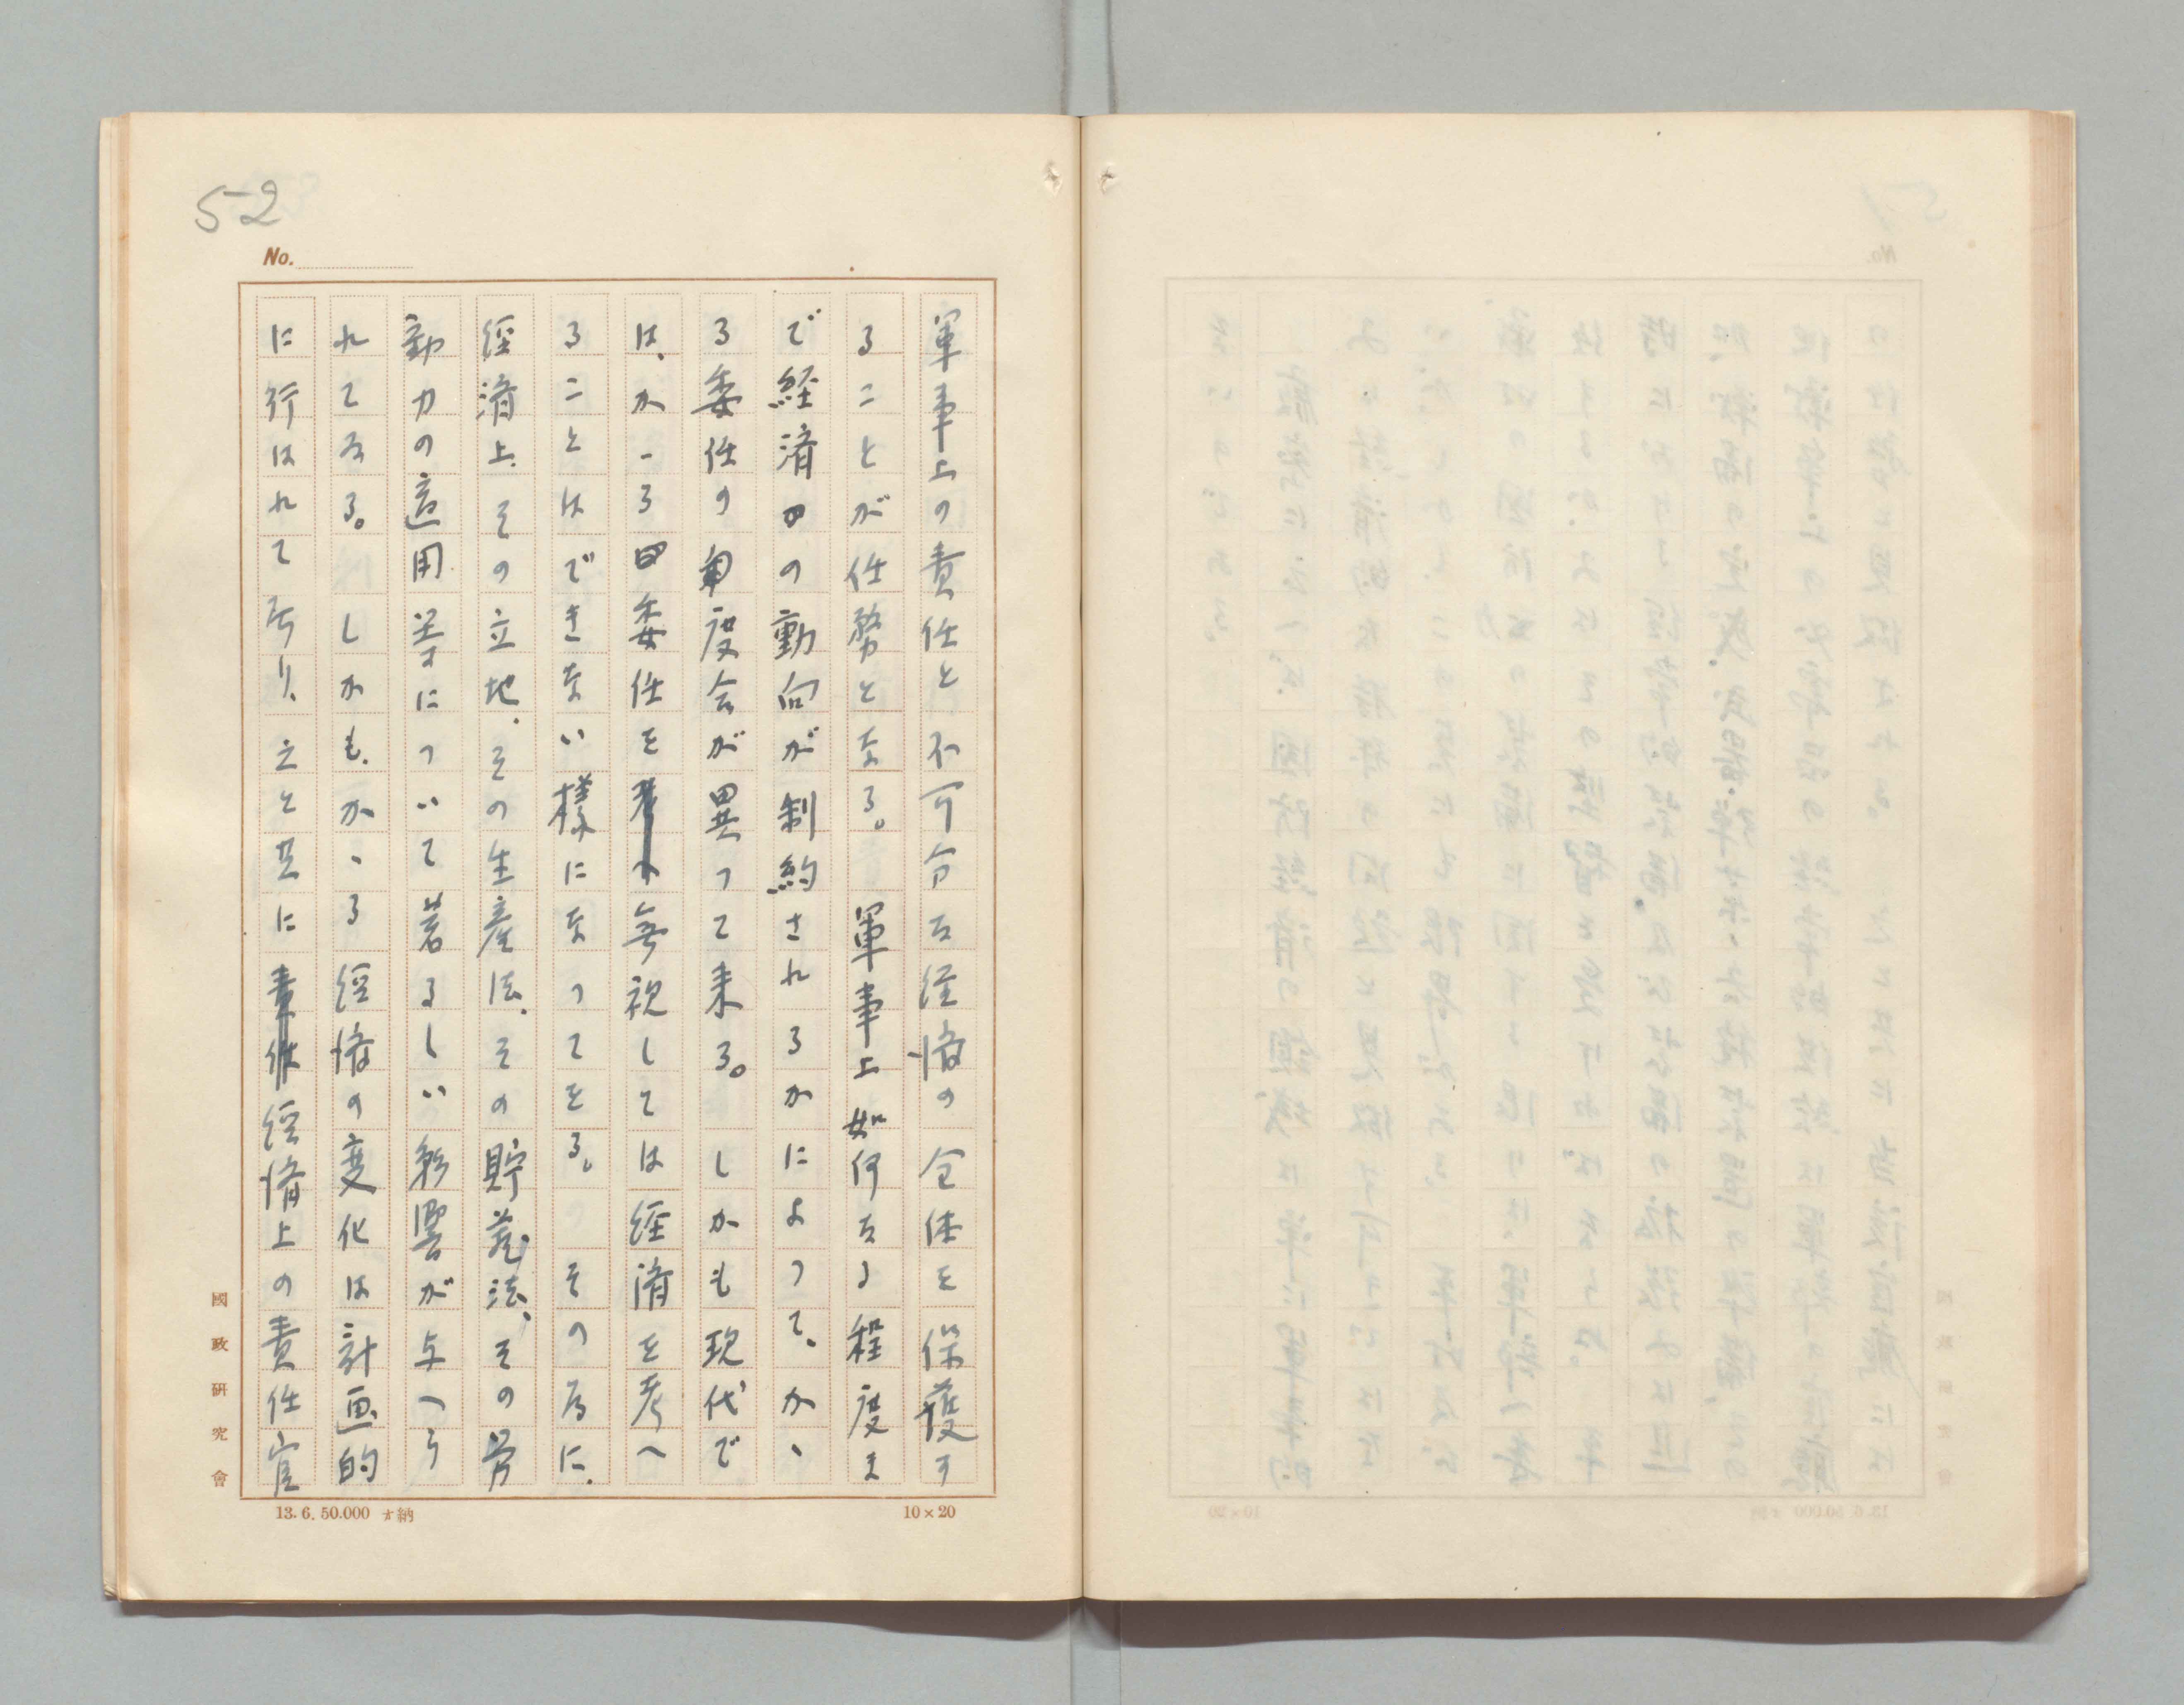 52
No.
軍事上の責任と不可分な経済の全体を保護す
ることが任務となる。　軍事上如何なる程度ま
で経済の動向が制約されるかによって、かゝ
る委任の角度合が異って来る。　しかも現代で
は、かゝる委任を無視しては経済を考へ
ることはできない様になってをる。　そのために、
経済上、その立地、その生産法、その貯蔵法、その労
働力の適用等について著るしい影響が与へら
れてゐる。　しかも、かゝる経済の変化は計画的
に行はれて居り、之と共に経済上の責任官
國政研究會
13.6.50.000 納
10×20